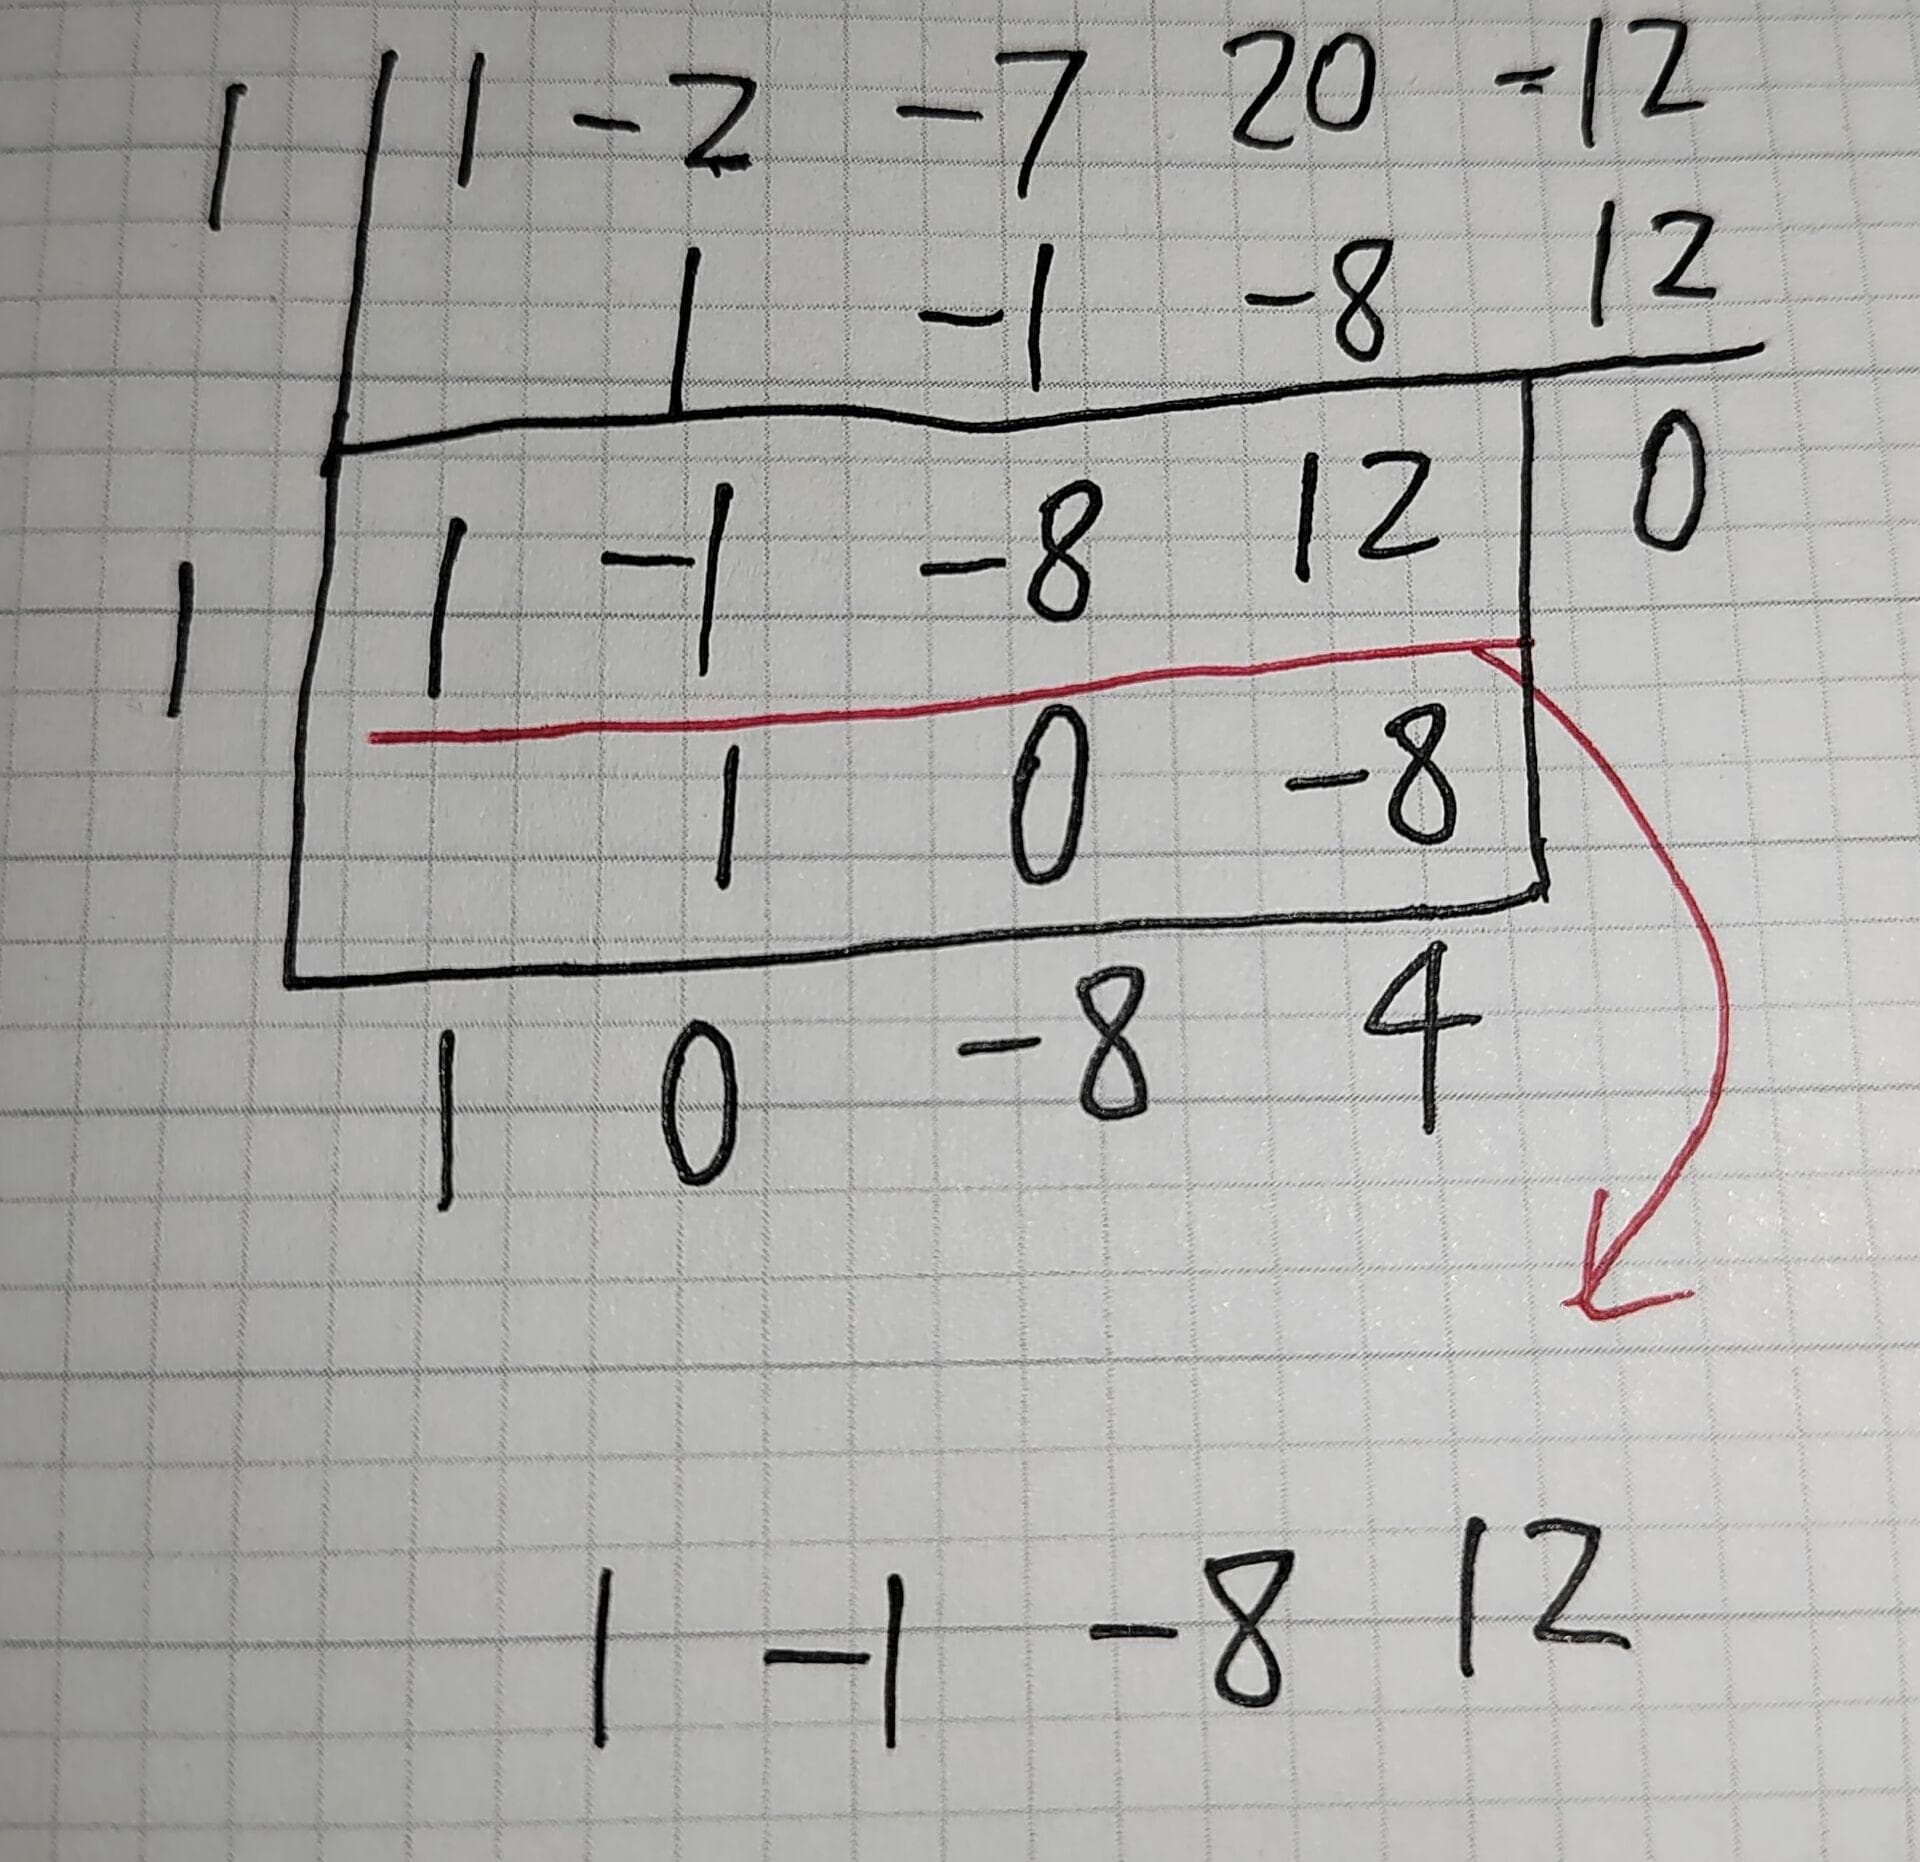 1 1 -2 -7 20 -12
1 -1 -8 12
1 -1 -8 12 0
1
1 0 -8
1 0 -8 4
1 -1 -8 12